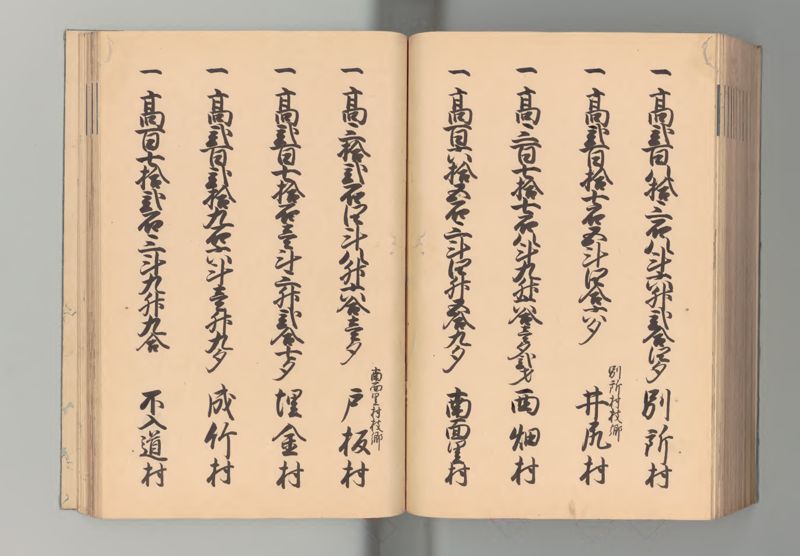 一 高弐百八拾三石八斗六升弐合四夕 別所村
別所村枝郷
一 高弐百拾七石五斗四合六夕 井尻村
一 高三百七拾七石八斗九升六合壱夕弐才 西畑村
一 高百八拾五石三斗四升五合九夕 南面里村
南面里村枝郷
一 高三拾弐石四斗八升六合壱夕 戸板村
一 高弐百七拾石壱斗三升弐合七夕 埋金村
一 高弐百弐拾九石六斗壱升九夕 成竹村
一 高百七拾弐石三斗九升九合 不入道村